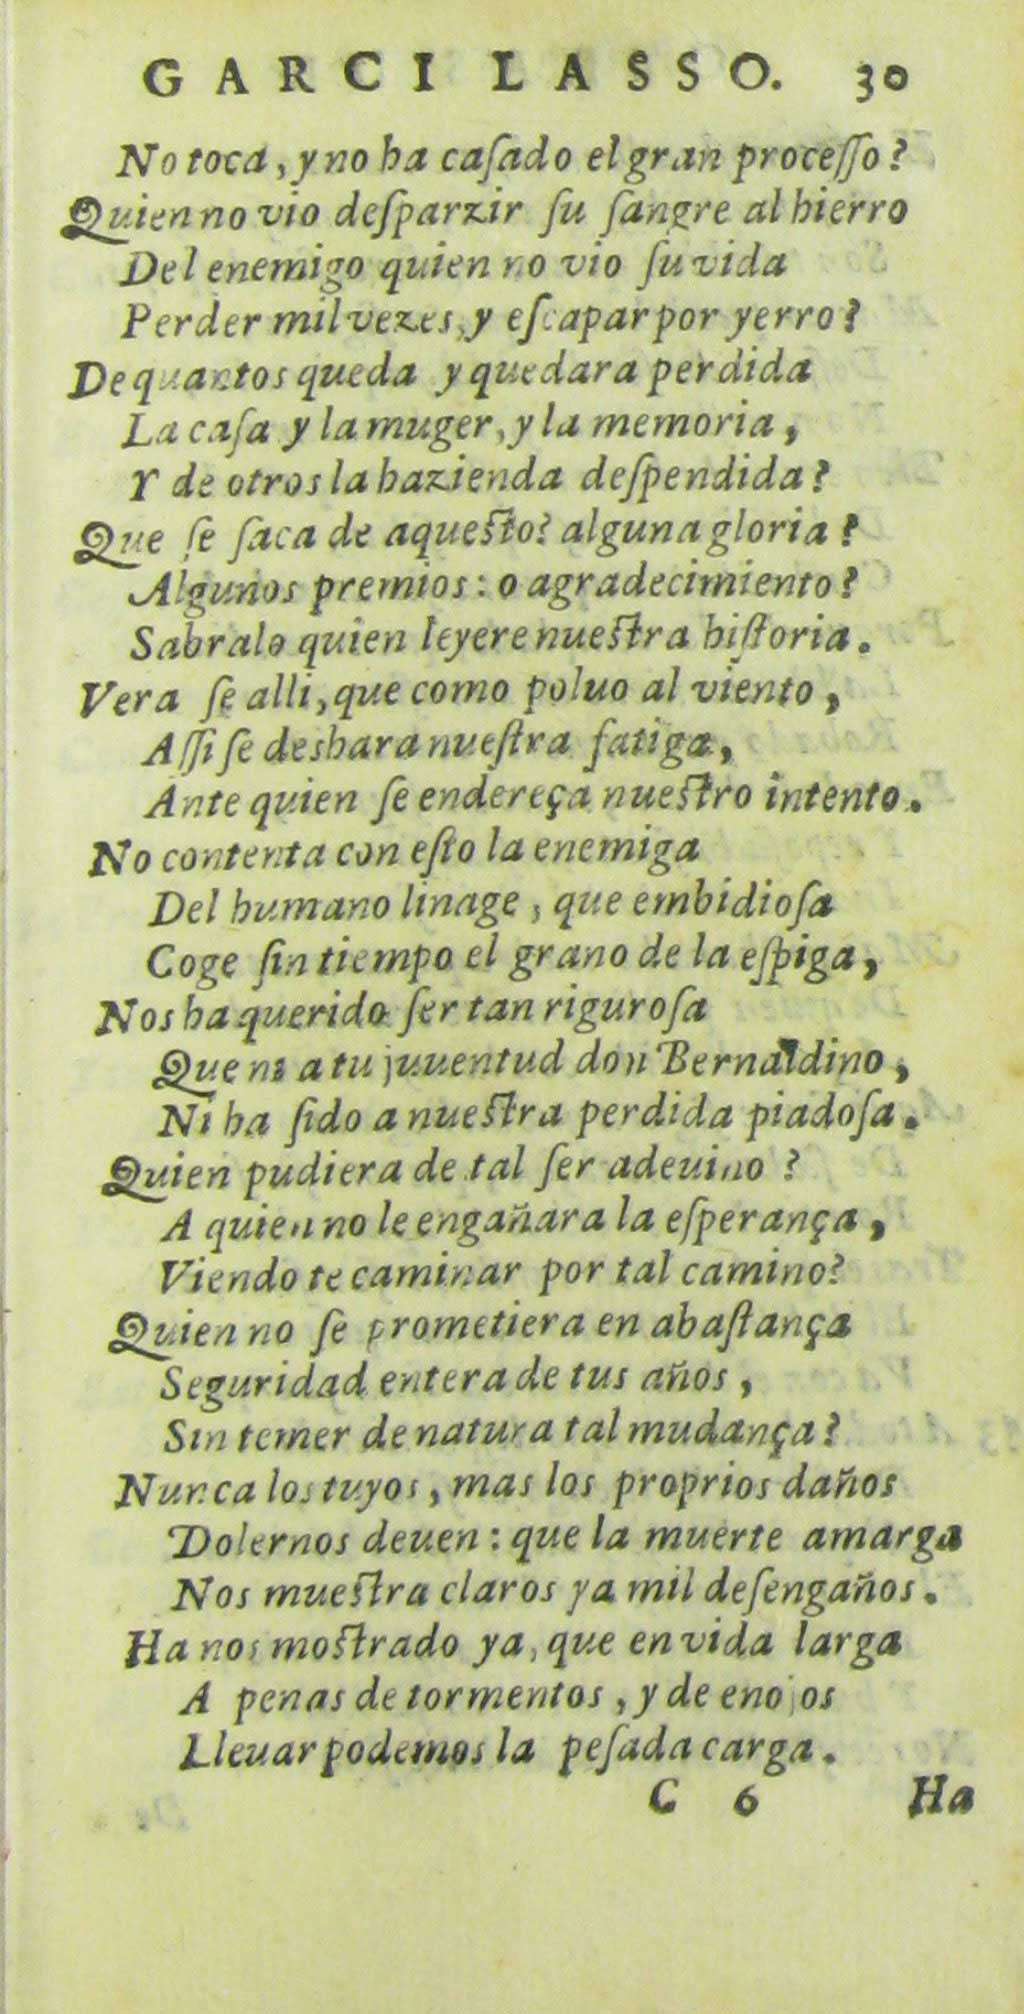 GARCI LASSO. 30
No toca, y no ha caſado el gran proceſſo?
Quien no vio deſparzir ſu ſangre al hierro
Del enemigo quien no vio ſu vida
Perder mil vezes, y eſcapar por yerro?
De quantos queda y quedara perdida
La caſa y la muger, y la memoria,
Y de otros la hazienda deſpendida?
Que ſe ſaca de aqueſto? alguna gloria?
Algunos premios: o agradecimiento?
Sabralo quien leyere nueſtra hiſtoria.
Vera ſe alli, que como poluo al viento,
Aſſi ſe deshara nueſtra fatiga,
Ante quien ſe endereça nueſtro intento.
No contenta con eſto la enemiga
Del humano linage, que embidioſa
Coge ſin tiempo el grano de la eſpiga,
Nos ha querido ſer tan riguroſa
Que ni a tu juuentud don Bernaldino,
Ni ha ſido a nueſtra perdida piadoſa.
Quien pudiera de tal ſer adeuino?
A quien no le engañara la eſperança,
Viendo te caminar por tal camino?
Quien no ſe prometiera en abaſtança
Seguridad entera de tus años,
Sin temer de natura tal mudança?
Nunca los tuyos, mas los proprios daños
Dolernos deuen: que la muerte amarga
Nos mueſtra claros ya mil deſengaños.
Ha nos moſtrado ya, que en vida larga
A penas de tormentos, y de enojos
Lleuar podemos la peſada carga.
C 6 Ha